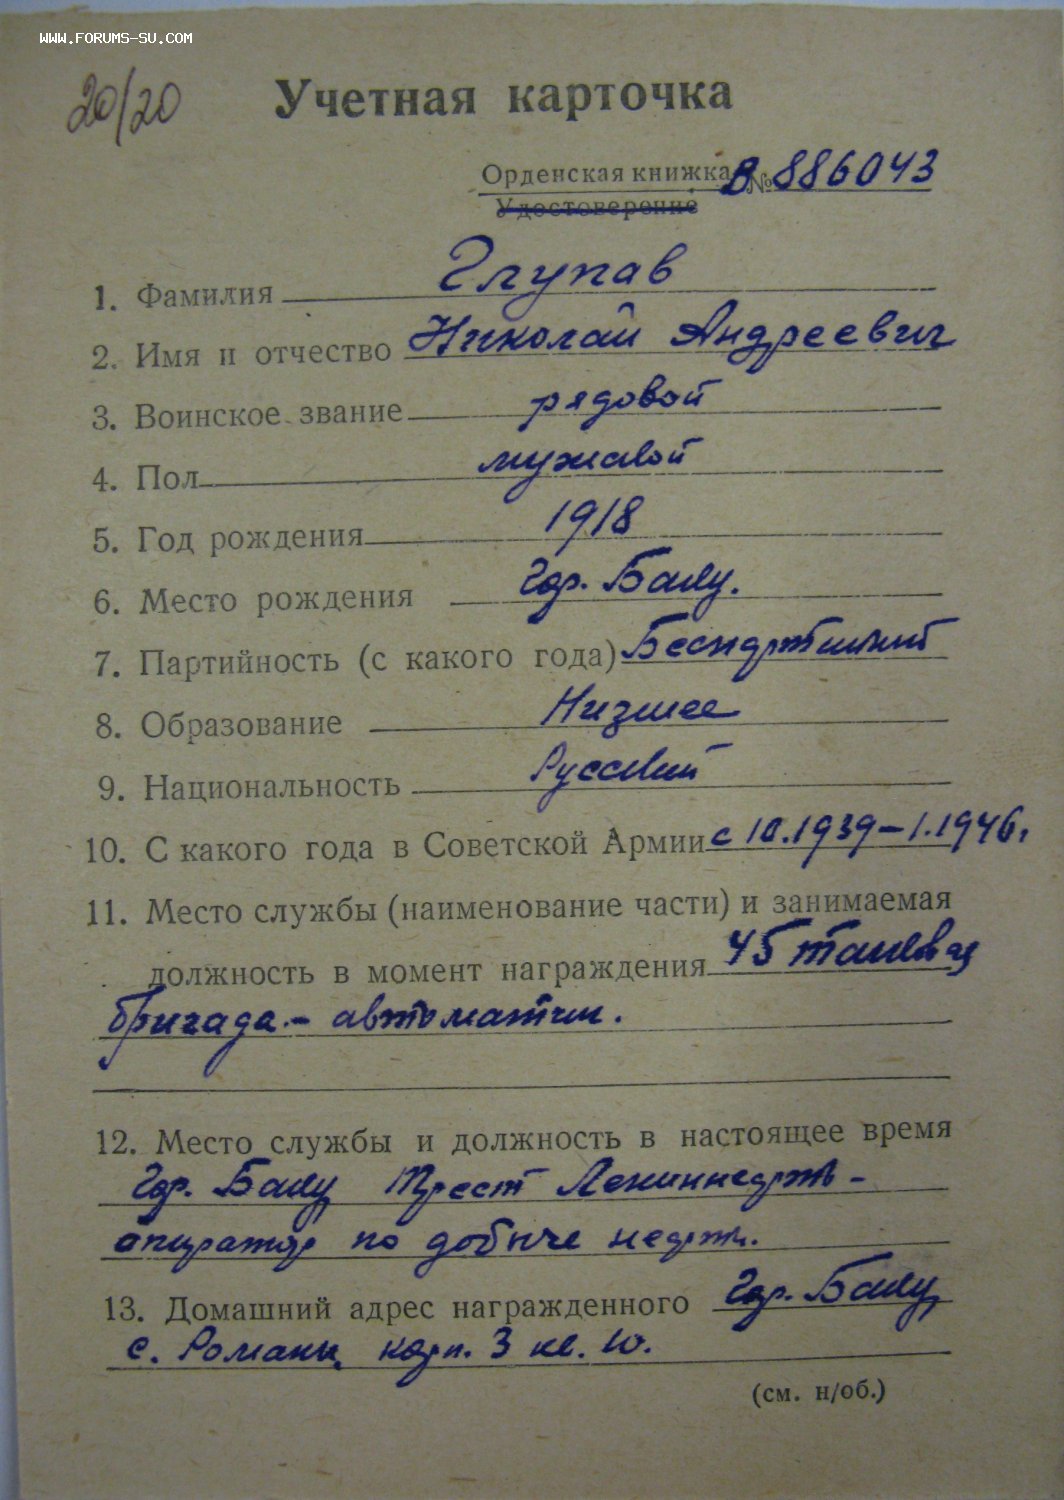 WWW.FORUMS-SU.COM
20/20
Учетная карточка
Орденская книжка В № 886043
Удостоверение
1. Фамилия Глупав
2. Имя и отчество Николай Андреевич
3. Воинское звание рядовой
4. Пол мужской
5. Год рождения 1918
6. Место рождения Гор. Баку.
7. Партийность (с какого года) Беспартийный
8. Образование Низшее
9. Национальность Русский
10. С какого года в Советской Армии с 10.1939-1.1946г
11. Место службы (наименование части) и занимаемая
должность в момент награждения 45 танковая
бригада - автоматчик.
12. Место службы и должность в настоящее время
Гор. Баку Трест Лениннефть -
оператор по добыче нефти.
13. Домашний адрес награжденного Гор. Баку
с. Романы корп. 3 кв. 10.
(см. н/об.)